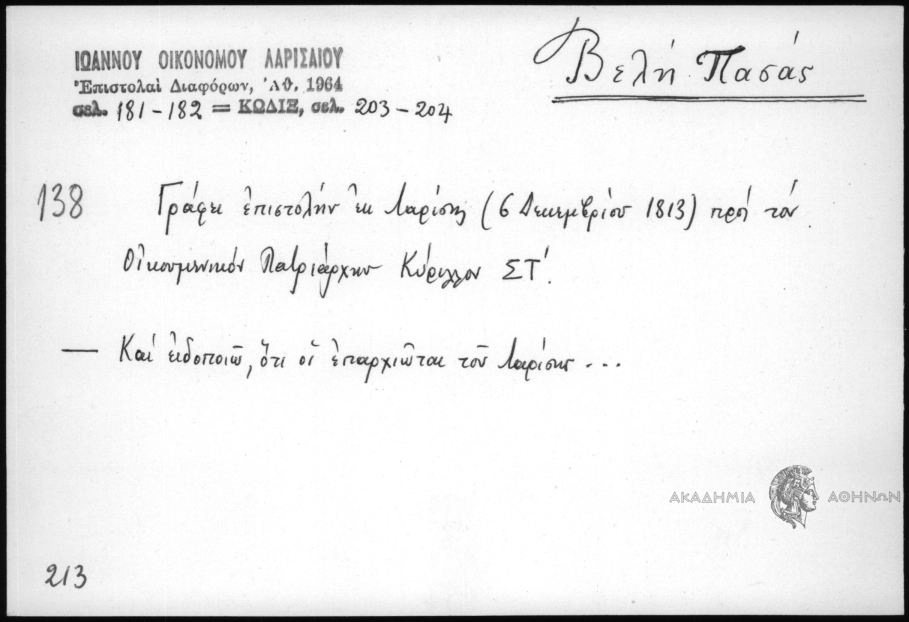 ΙΩΑΝΝΟΥ ΟΙΚΟΝΟΜΟΥ ΛΑΡΙΣΑΙΟΥ
Ἐπιστολαὶ Διαφόρων, Ἀθ. 1964
σελ. 181-182 = ΚΩΔΙΞ, σελ. 203-204
Βελῆ Πασάς
138 Γράφει ἐπιστολήν ἐκ Λαρίσης (6 Δεκεμβρίου 1813) πρός τόν
Οἰκουμενικόν Πατριάρχην Κύριλλον ΣΤ΄.
— Καί εἰδοποιῶ, ὅτι οἱ ἐπαρχιῶται τοῦ Λαρίσης ...
ΑΚΑΔΗΜΙΑ ΑΘΗΝΩΝ
213